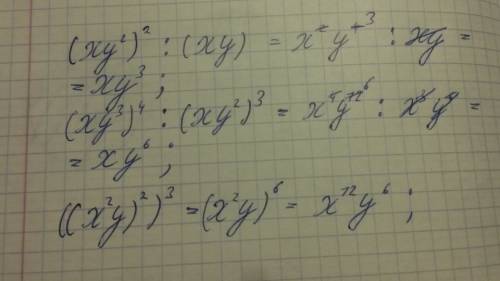 (xy²)² : (xy) = x²y⁴ ³ : xy =
= xy³ ;
(xy³)⁴ : (xy²)³ = x⁴y¹² ⁶ : x³y⁶ =
= xy⁶ ;
((x²y)²)³ = (x²y)⁶ = x¹²y⁶ ;